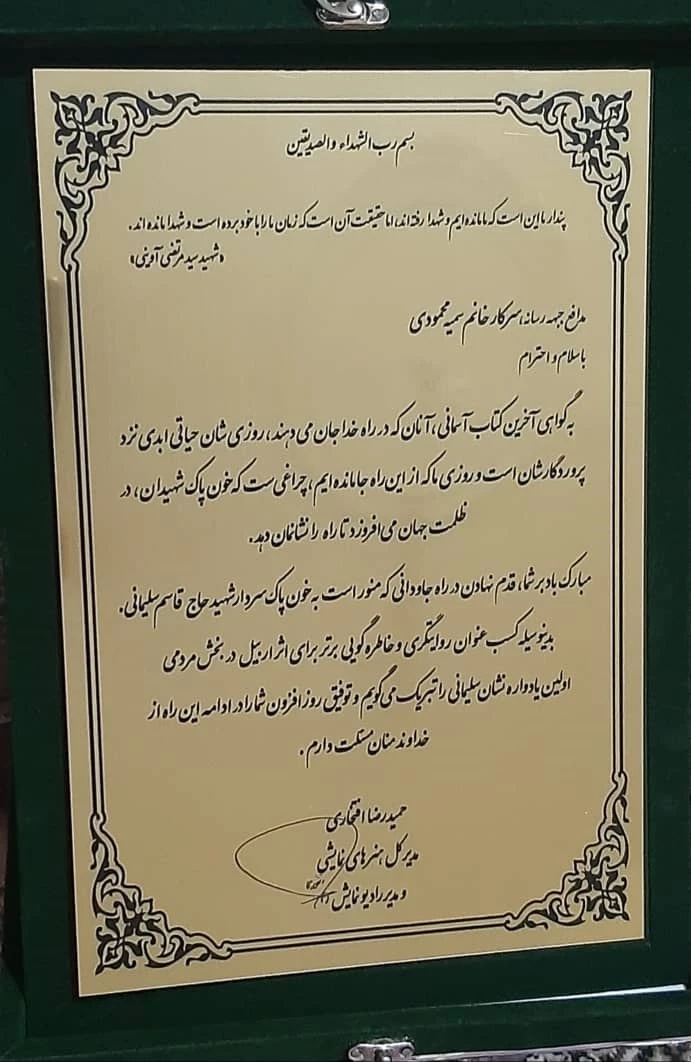 بسم رب الشهداء والصدیقین
پندار ما این است که ما مانده ایم و شهدا رفته اند، اما حقیقت آن است که زمان ما را با خود برده است و شهدا مانده اند.
«شهید سید مرتضی آوینی»
مدافع جبهه رسانه، سرکار خانم سمیه محمودی
با سلام و احترام
به گواهی آخرین کتاب آسمانی، آنان که در راه خدا جان می دهند، روزی شان حیاتی ابدی نزد
پروردگارشان است و روزی ما که از این راه جا مانده ایم، چراغی ست که خون پاک شهیدان، در
ظلمت جهان می افروزد تا راه را نشانمان دهد.
مبارک باد بر شما، قدم نهادن در راه جاودانی که منور است به خون پاک سردار شهید حاج قاسم سلیمانی.
بدینوسیله کسب عنوان روایتگری و خاطره گویی برتر برای اثر اربیل در بخش مردمی
اولین یادواره نشان سلیمانی را تبریک می گویم و توفیق روز افزون شما را در ادامه این راه از
خداوند منان مسئلت دارم.
حمیدرضا افتخاری
مدیر کل هنرهای نمایشی
و مدیر رادیو نمایش